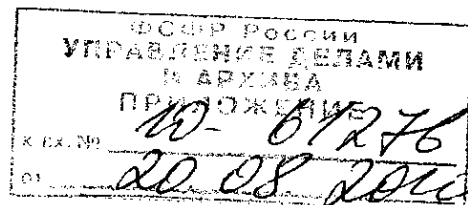 ФСФР России
УПРАВЛЕНИЕ ДЕЛАМИ
И АРХИВА
ПРИЛОЖЕНИЕ
к вх. № 10-61276
от 20 08 2010